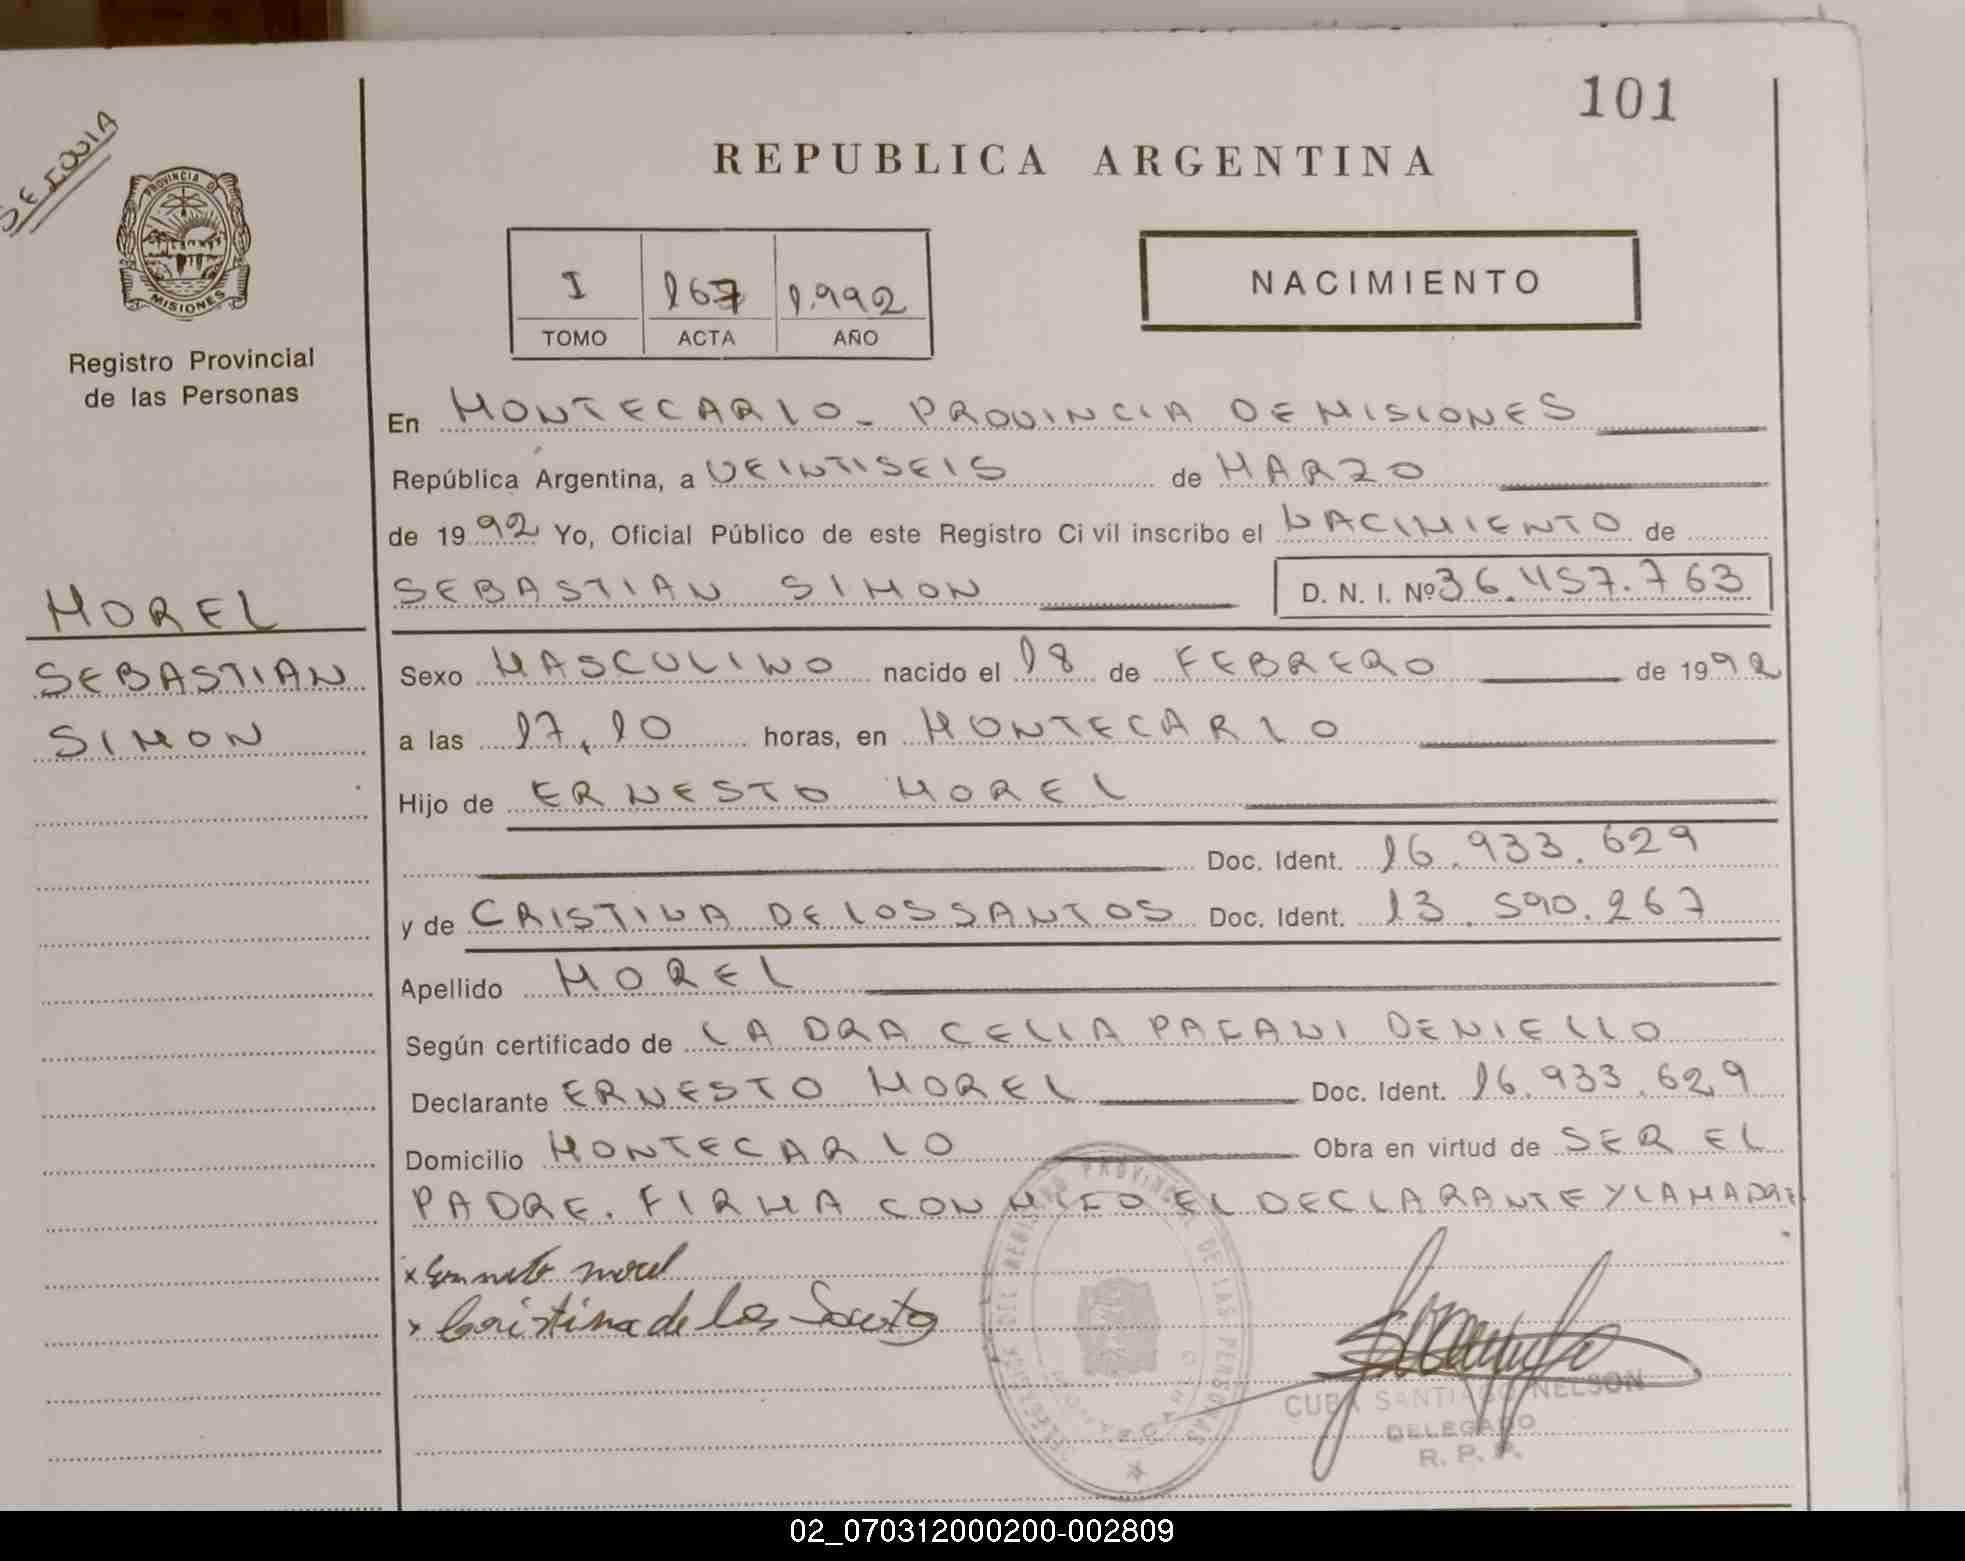 101
REPUBLICA ARGENTINA
PROVINCIA DE
MISIONES
Registro Provincial
de las Personas
I 167 1.992
TOMO ACTA AÑO
NACIMIENTO
En MONTECARLO - PROVINCIA DE MISIONES
República Argentina, a VEINTISEIS de MARZO
de 1992 Yo, Oficial Público de este Registro Civil inscribo el NACIMIENTO de
SEBASTIAN SIMON D. N. I. Nº 36.457.763
MOREL
SEBASTIAN
SIMON
Sexo MASCULINO nacido el 18 de FEBRERO de 1992
a las 17,10 horas, en MONTECARLO
Hijo de ERNESTO MOREL
Doc. Ident. 16.933.629
y de CRISTINA DE LOS SANTOS Doc. Ident. 13.590.267
Apellido MOREL
Según certificado de LA DRA CELIA PAGANI DENIELLO
Declarante ERNESTO MOREL Doc. Ident. 16.933.629
Domicilio MONTECARLO Obra en virtud de SER EL
PADRE. FIRMA CONMIGO EL DECLARANTE Y LA MADRE
x Ernesto morel
x Cristina de los Santos
CUBA SANTIAGO NELSON
DELEGADO
R. P. P.
02_070312000200-002809